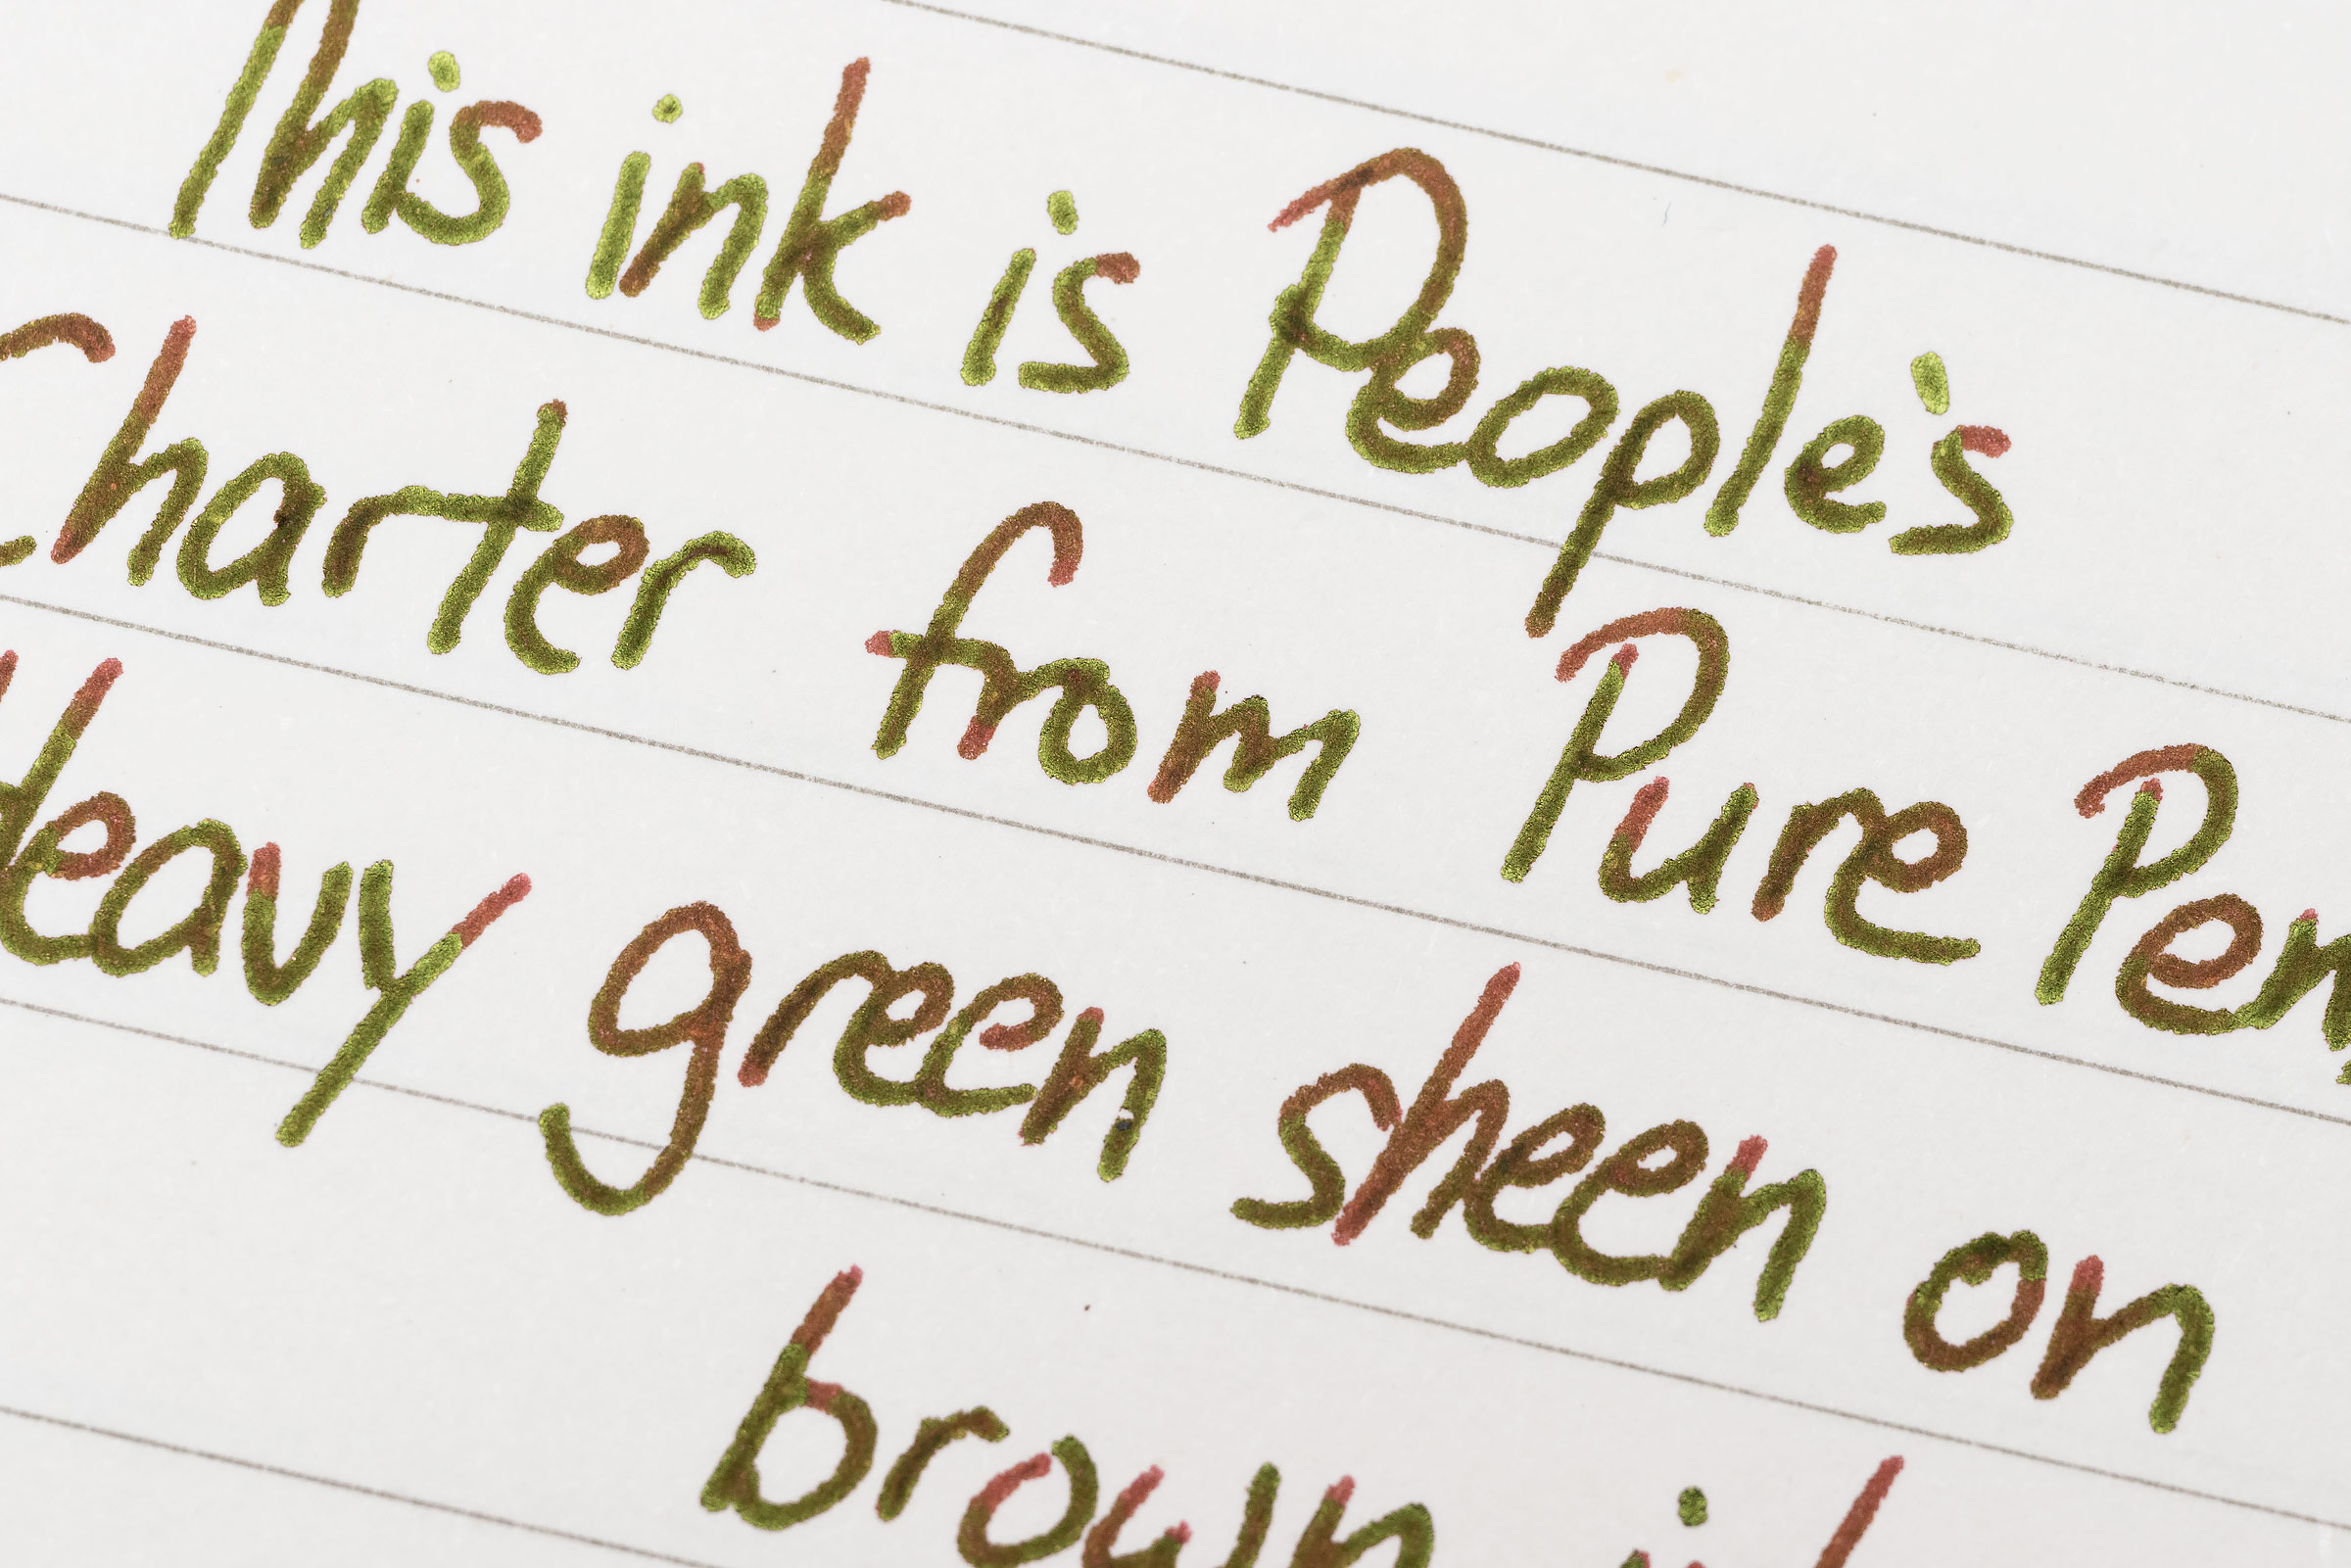 This ink is People's
Charter from Pure Pen
Heavy green sheen on
brown ink